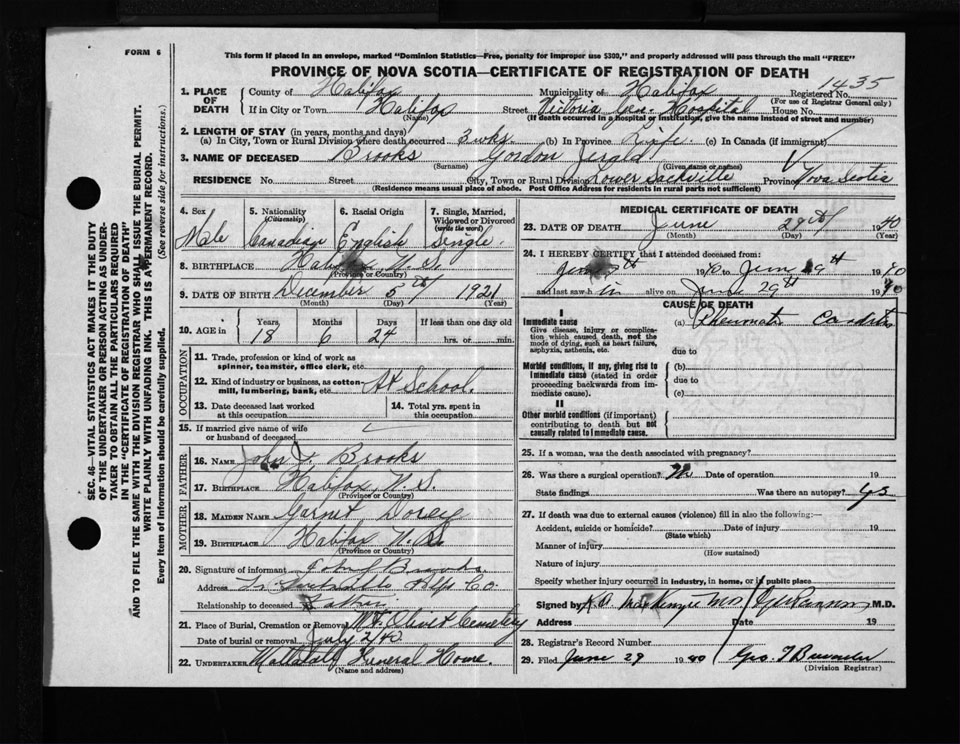 FORM 6
This form if placed in an envelope, marked "Dominion Statistics—Free, penalty for improper use $300," and properly addressed will pass through the mail "FREE"
PROVINCE OF NOVA SCOTIA—CERTIFICATE OF REGISTRATION OF DEATH
1435
1. PLACE OF DEATH County of Halifax Municipality of Halifax Registered No.
(For use of Registrar General only)
If in City or Town Halifax Street Victoria Gen. Hospital House No.
(Name) (If death occurred in a hospital or institution, give the name instead of street and number)
2. LENGTH OF STAY (in years, months and days)
(a) In City, Town or Rural Division where death occurred 3 wks. (b) In Province Life. (c) In Canada (if immigrant)
3. NAME OF DECEASED Brooks Gordon Jerald
(Surname) (Given names or names)
RESIDENCE No. Street City, Town or Rural Division Lower Sackville Province Nova Scotia
(Residence means usual place of abode. Post Office Address for residents in rural parts not sufficient)
SEC. 46—VITAL STATISTICS ACT MAKES IT THE DUTY OF THE UNDERTAKER OR PERSON ACTING AS UNDERTAKER TO OBTAIN ALL THE PARTICULARS REQUIRED IN THE "CERTIFICATE OF REGISTRATION OF DEATH" AND TO FILE THE SAME WITH THE DIVISION REGISTRAR WHO SHALL ISSUE THE BURIAL PERMIT.
WRITE PLAINLY WITH UNFADING INK. THIS IS A PERMANENT RECORD.
Every item of Information should be carefully supplied. (See reverse side for instructions.)
4. Sex 5. Nationality (Citizenship) 6. Racial Origin 7. Single, Married, Widowed or Divorced (write the word)
Male Canadian English Single.
8. BIRTHPLACE Halifax N.S.
(Province or Country)
9. DATE OF BIRTH December 5th 1921
(Month) (Day) (Year)
10. AGE in Years Months Days If less than one day old
18 6 24 hrs. or min.
OCCUPATION
11. Trade, profession or kind of work as spinner, teamster, office clerk, etc.
12. Kind of industry or business, as cotton-mill, lumbering, bank, etc. At School.
13. Date deceased last worked at this occupation
14. Total yrs. spent in this occupation.
15. If married give name of wife or husband of deceased
FATHER
16. NAME John J. Brooks
17. BIRTHPLACE Halifax, N.S.
(Province or Country)
MOTHER
18. MAIDEN NAME Garnet Dorey
19. BIRTHPLACE Halifax N.S.
(Province or Country)
20. Signature of informant John J Brooks
Address Lr Sackville Hfx Co
Relationship to deceased Father
21. Place of Burial, Cremation or Removal Mt. Olivet Cemetery
Date of burial or removal July 2/40
22. UNDERTAKER Mattatall Funeral Home.
(Name and address)
MEDICAL CERTIFICATE OF DEATH
23. DATE OF DEATH June 29th 1940
(Month) (Day) (Year)
24. I HEREBY CERTIFY that I attended deceased from:
1940 to June 29th 1940
and last saw h im alive on June 29th 1940
CAUSE OF DEATH
I
Immediate cause (a) Rheumatic Carditis
Give disease, injury or complication which caused death, not the mode of dying, such as heart failure, asphyxia, asthenia, etc.
due to
Morbid conditions, if any, giving rise to immediate cause (stated in order proceeding backwards from immediate cause). (b)
due to
(c)
II
Other morbid conditions (if important) contributing to death but not causally related to immediate cause.
25. If a woman, was the death associated with pregnancy?
26. Was there a surgical operation? No Date of operation 19
State findings Was there an autopsy? Yes
27. If death was due to external causes (violence) fill in also the following:—
Accident, suicide or homicide? Date of injury 19
(State which)
Manner of injury
(How sustained)
Nature of injury
Specify whether injury occurred in industry, in home, or in public place
Signed by MacKenzie M.D.
Address Date 19
28. Registrar's Record Number
29. Filed June 29 1940 Geo. T
(Division Registrar)